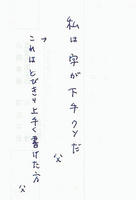 私は字が下手クソだ
父
→
これはとびきり上手く書けた方
父